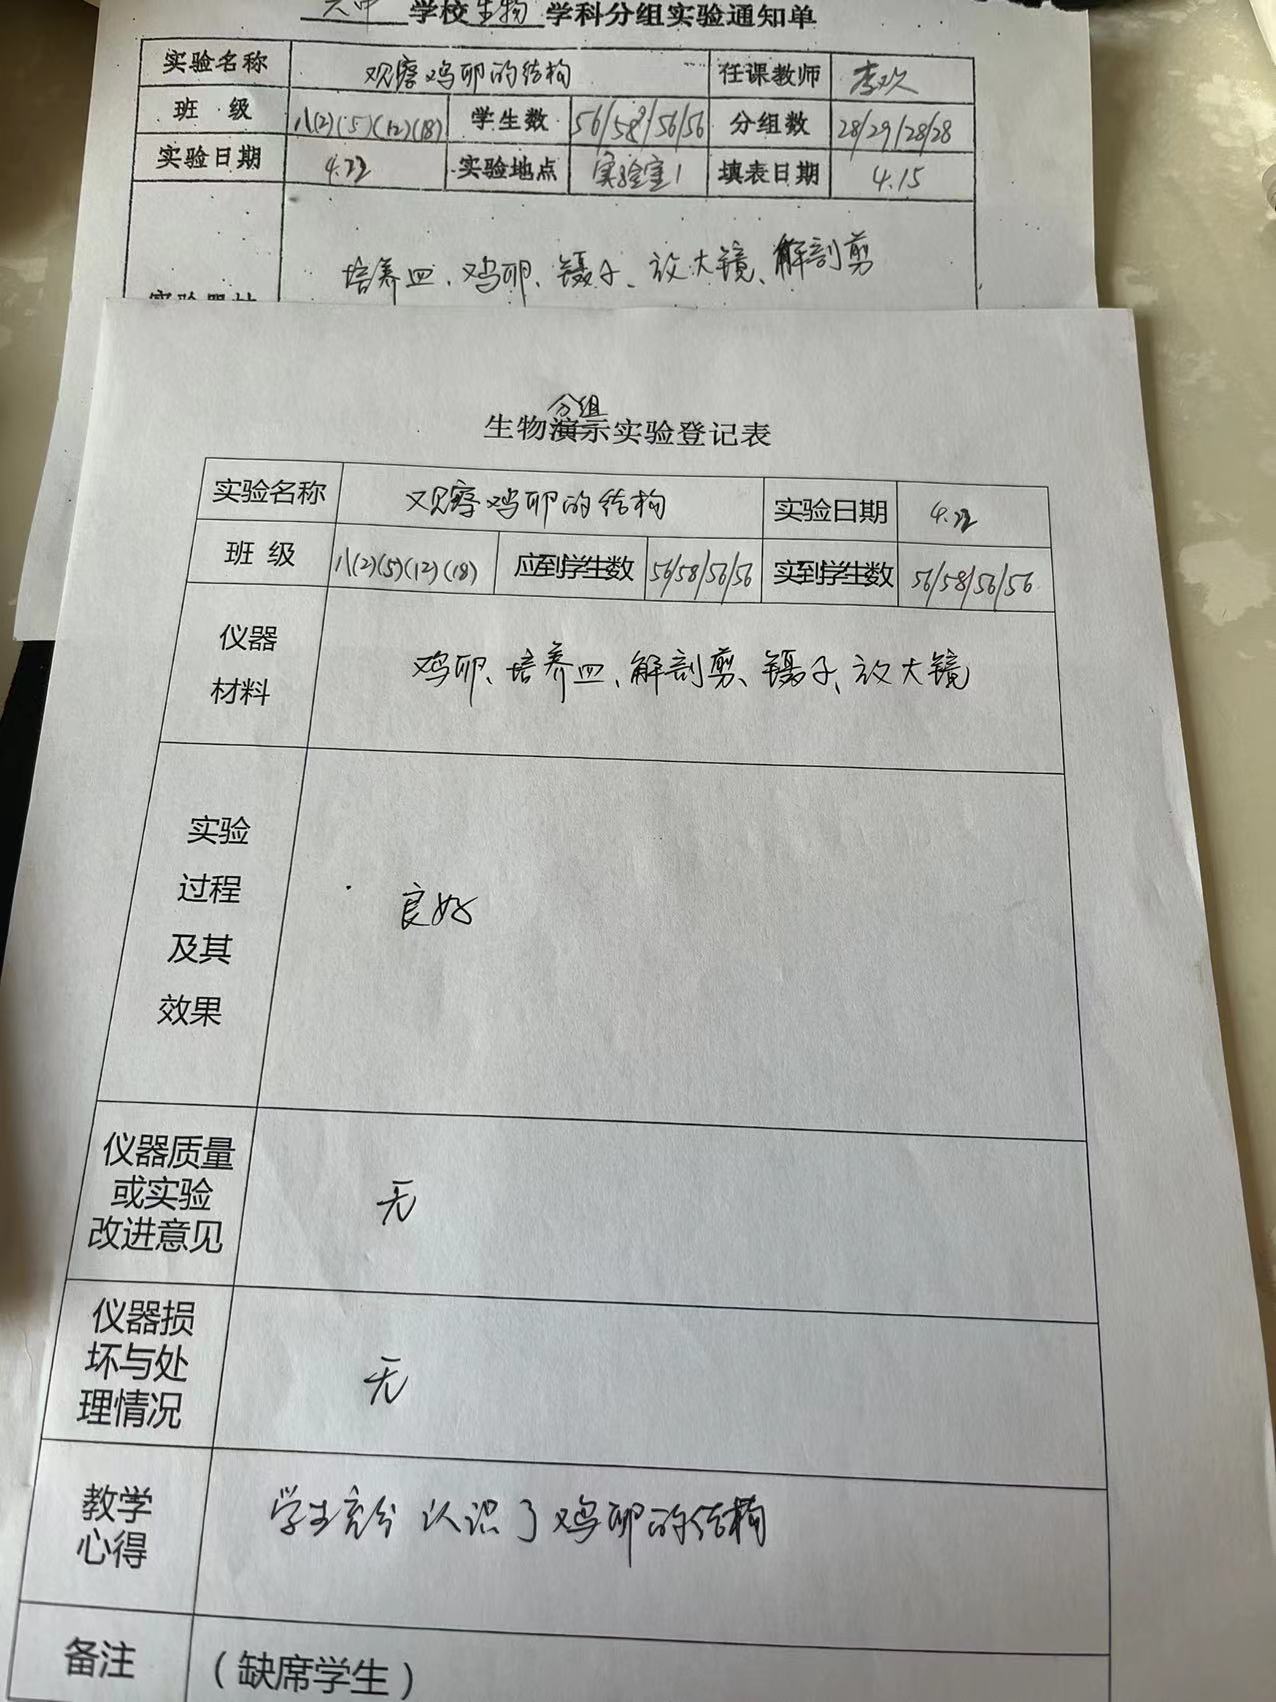 六中 学校 生物 学科分组实验通知单
实验名称 观察鸡卵的结构 任课教师 李欢
班 级 八(2)(5)(12)(18) 学生数 56/58/56/56 分组数 28/29/28/28
实验日期 4.22 实验地点 实验室1 填表日期 4.15
培养皿、鸡卵、镊子、放大镜、解剖剪
分组
生物演示实验登记表
实验名称 观察鸡卵的结构 实验日期 4.22
班 级 八(2)(5)(12)(18) 应到学生数 56/58/56/56 实到学生数 56/58/56/56
仪器
材料
鸡卵、培养皿、解剖剪、镊子、放大镜
实验
过程
及其
效果
良好
仪器质量
或实验
改进意见
无
仪器损
坏与处
理情况
无
教学
心得
学生充分认识了鸡卵的结构
备注 （缺席学生）